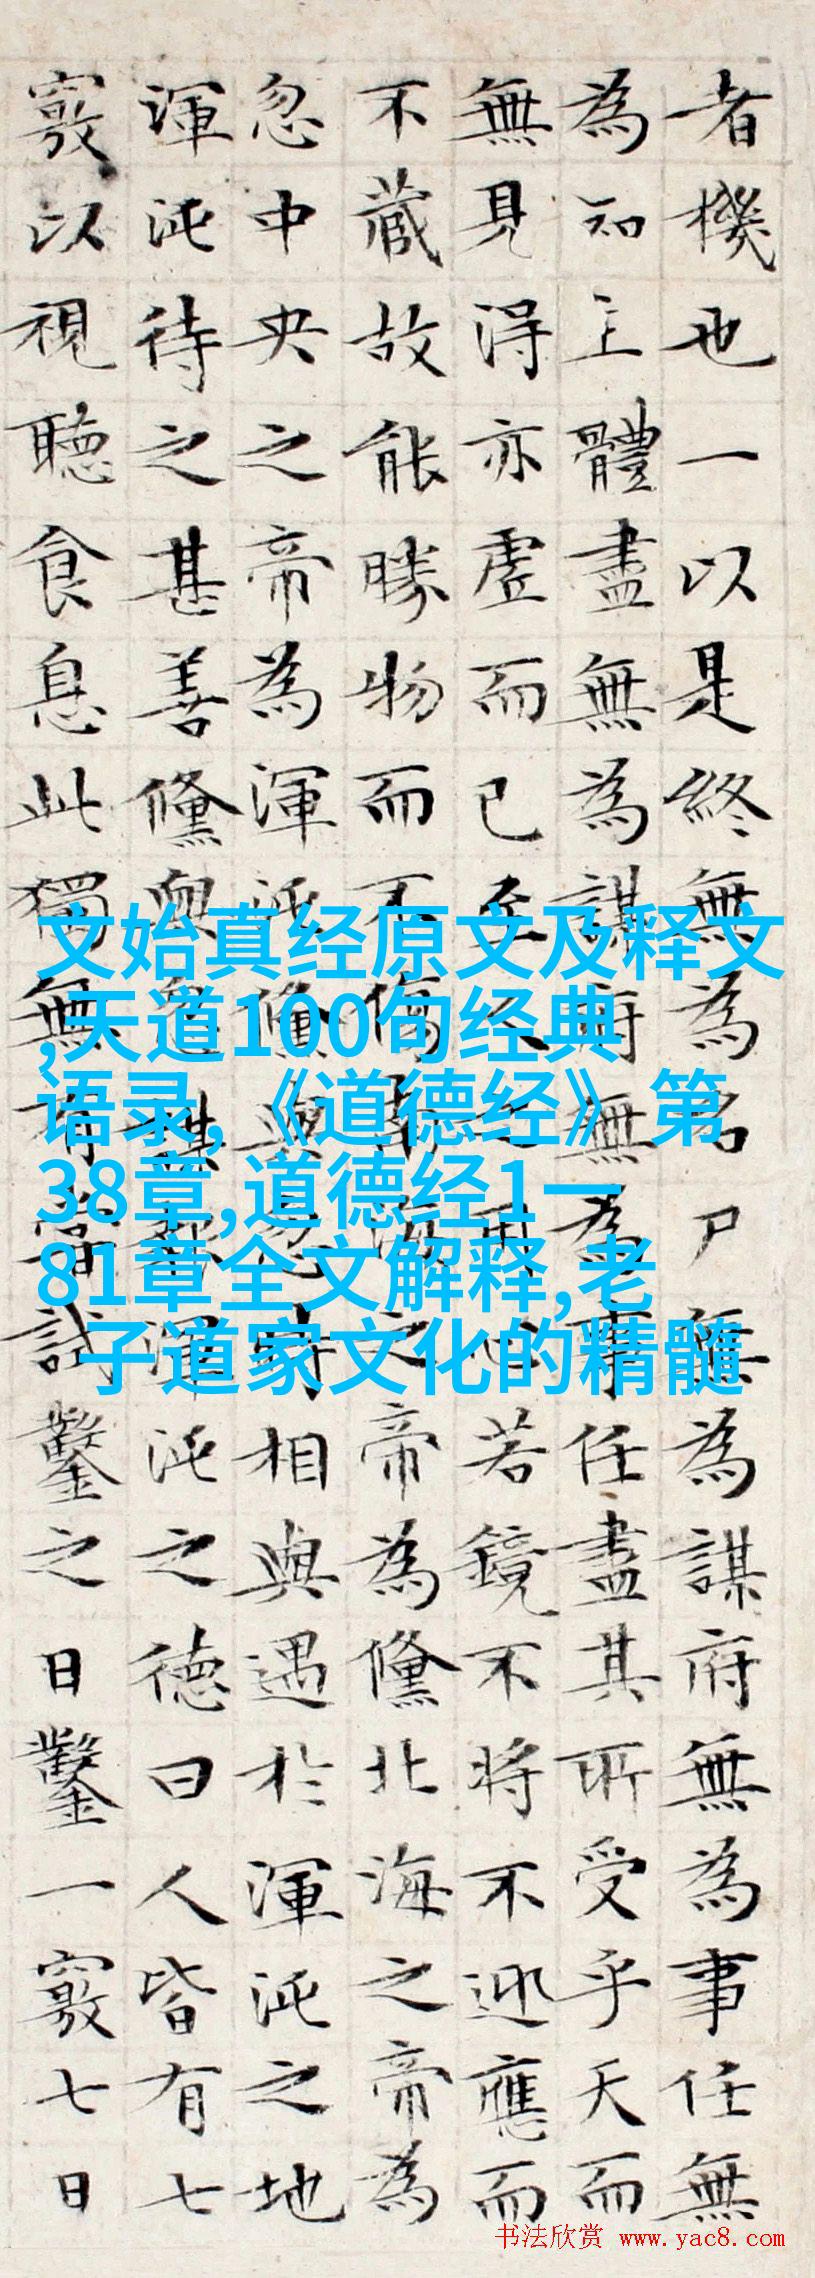 者機也一以是終無為名尸無為謀府無為事任無
為知主體盡無為謀府無為事任盡其所受乎天而
無見得亦虛而已至人之用心若鏡不將不迎應而
不藏故能勝物而不傷南海之帝為儵北海之帝為
忽中央之帝為渾沌儵與忽時相與遇於渾沌之地
渾沌待之甚善儵與忽謀報渾沌之德曰人皆有七
竅以視聽食息此獨無有嘗試鑿之日鑿一竅七日
文始真经原文及释文
,天道100句经典
语录,《道德经》第
38章,道德经1一
81章全文解释,老
子道家文化的精髓
书法欣赏 www.yac8.com